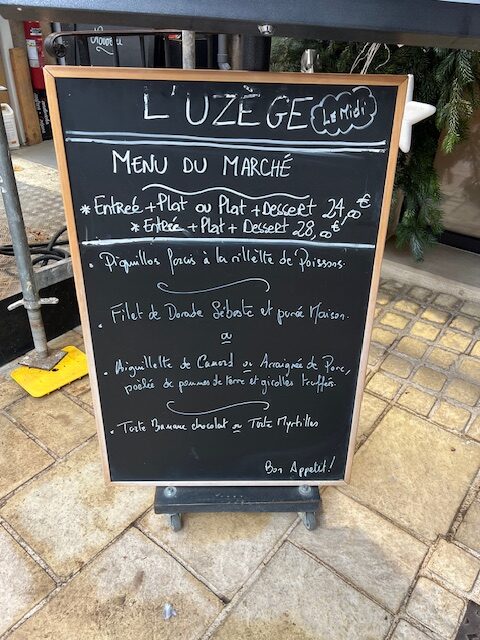 L'UZÈGE Le Midi
MENU DU MARCHÉ
* Entreé + Plat ou Plat + Dessert 24,00€
* Entrée + Plat + Dessert 28,00€
• Piquillos farcis à la rillette de Poissons.
• Filet de Dorade Sébaste et purée Maison.
ou
• Aiguillette de Canard ou Arraignée de Porc,
poêlée de pommes de terre et girolles truffées.
• Tarte Banane chocolat ou Tarte Myrtilles
Bon Appetit!